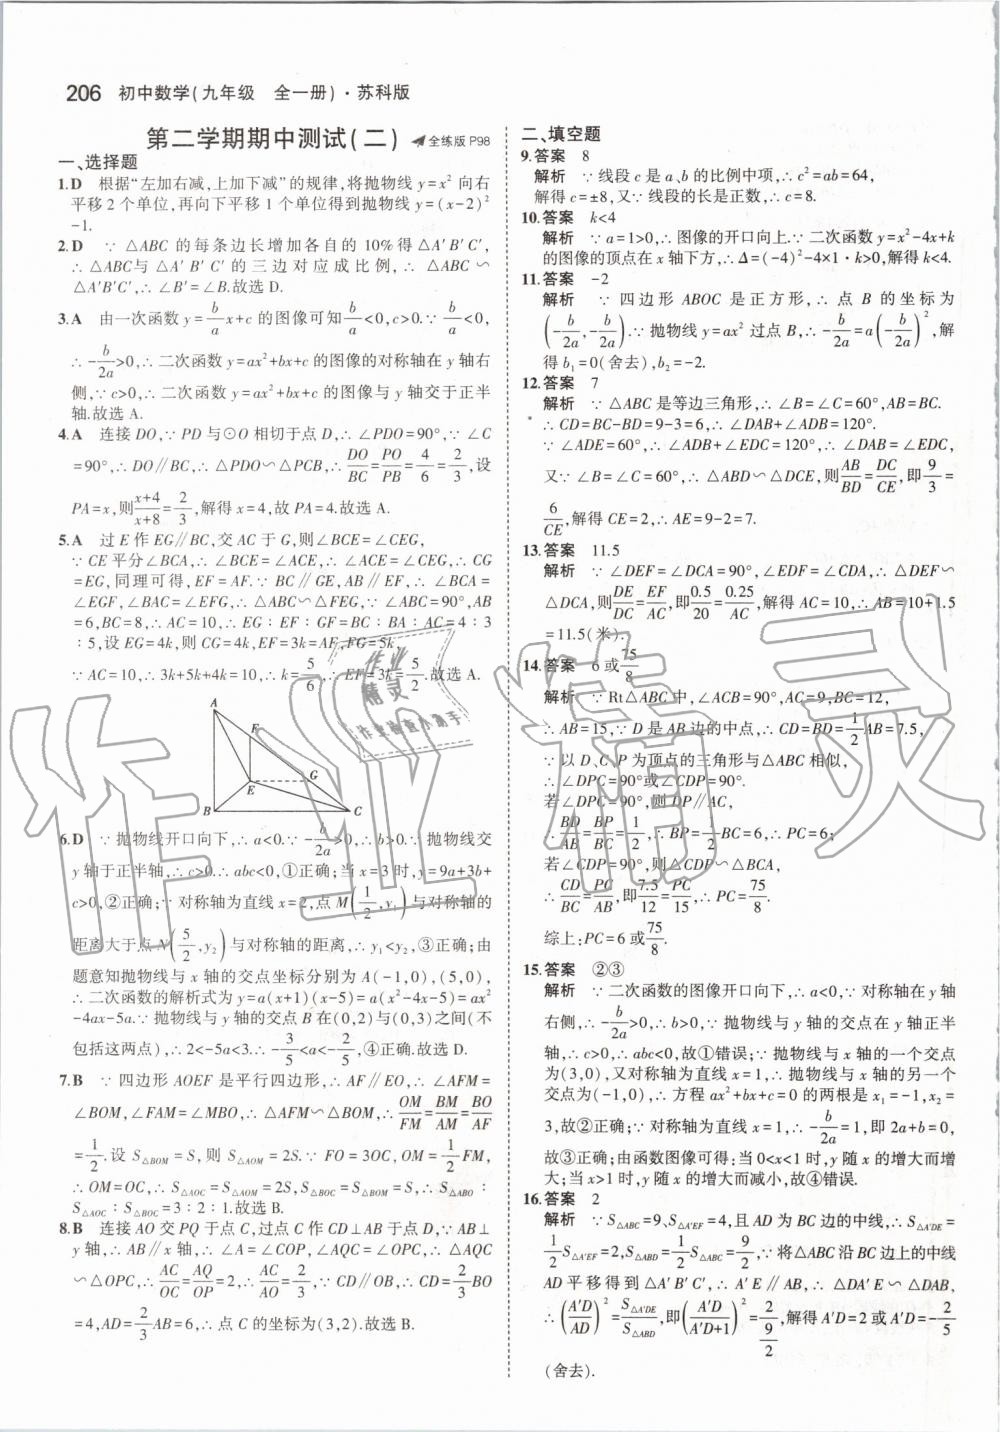 206 初中数学(九年级 全一册)·苏科版
第二学期期中测试(二) 全练版 P98
一、选择题
1.D 根据“左加右减,上加下减”的规律,将抛物线 y=x² 向右
平移 2 个单位,再向下平移 1 个单位得到抛物线 y=(x-2)²
-1.
2.D ∵△ABC 的每条边长增加各自的 10%得△A′B′C′,
∴△ABC与△A′B′C′的三边对应成比例,∴△ABC∽
△A′B′C′,∴∠B′=∠B.故选 D.
3.A 由一次函数 y=b/a x+c 的图像可知 b/a<0,c>0.∵b/a<0,
∴-b/2a>0,∴二次函数 y=ax²+bx+c 的图像的对称轴在 y 轴右
侧,∵c>0,∴二次函数 y=ax²+bx+c 的图像与 y 轴交于正半
轴.故选 A.
4.A 连接 DO,∵PD 与⊙O 相切于点 D,∴∠PDO=90°,∵∠C
=90°,∴DO∥BC,∴△PDO∽△PCB,∴DO/BC=PO/PB=4/6=2/3,设
PA=x,则(x+4)/(x+8)=2/3,解得 x=4,故 PA=4.故选 A.
5.A 过 E 作 EG∥BC,交 AC 于 G,则∠BCE=∠CEG,
∵CE 平分∠BCA,∴∠BCE=∠ACE,∴∠ACE=∠CEG,∴CG
=EG,同理可得,EF=AF.∵BC∥GE,AB∥EF,∴∠BCA=
∠EGF,∠BAC=∠EFG,∴△ABC∽△FEG,∵∠ABC=90°,AB
=6,BC=8,∴AC=10,∴EG∶EF∶GF=BC∶BA∶AC=4∶3
∶5,设 EG=4k,则 CG=4k,EF=3k,FG=5k,
∵AC=10,∴3k+5k+4k=10,∴k=5/6,∴EF=3k=5/2.故选 A.
A
F
G
E
B
C
6.D ∵抛物线开口向下,∴a<0.∵-b/2a>0,∴b>0.∵抛物线交
y 轴于正半轴,∴c>0.∴abc<0,①正确;当 x=3 时,y=9a+3b+
c>0,②正确;∵对称轴为直线 x=2,点 M(1/2,y₁)与对称轴的
距离大于点 N(5/2,y₂)与对称轴的距离,∴y₁<y₂,③正确;由
题意知抛物线与 x 轴的交点坐标分别为 A(-1,0),(5,0),
∴二次函数的解析式为 y=a(x+1)(x-5)=a(x²-4x-5)=ax²
-4ax-5a.∵抛物线与 y 轴的交点 B 在(0,2)与(0,3)之间(不
包括这两点),∴2<-5a<3.∴-3/5<a<-2/5,④正确.故选 D.
7.B ∵四边形 AOEF 是平行四边形,∴AF∥EO,∴∠AFM=
∠BOM,∠FAM=∠MBO,∴△AFM∽△BOM,∴OM/FM=BM/AM=BO/AF
=1/2.设 S△BOM=S,则 S△AOM=2S.∵FO=3OC,OM=1/2FM,
∴OM=OC,∴S△AOC=S△AOM=2S,S△BOC=S△BOM=S,∴S△ABO∶
S△AOC∶S△BOC=3∶2∶1.故选 B.
8.B 连接 AO 交 PQ 于点 C,过点 C 作 CD⊥AB 于点 D,∵AB⊥
y 轴,∴AB∥x 轴,∴∠A=∠COP,∠AQC=∠OPC,∴△AQC
∽△OPC,∴AC/OC=AQ/OP=2,∴AC/AO=2/3.∵CD∥BO,∴CD=2/3BO
=4,AD=2/3AB=6,∴点 C 的坐标为(3,2).故选 B.
二、填空题
9.答案 8
解析 ∵线段 c 是 a、b 的比例中项,∴c²=ab=64,
解得 c=±8,又∵线段的长是正数,∴c=8.
10.答案 k<4
解析 ∵a=1>0,∴图像的开口向上.∵二次函数 y=x²-4x+k
的图像的顶点在 x 轴下方,∴Δ=(-4)²-4×1·k>0,解得 k<4.
11.答案 -2
解析 ∵四边形 ABOC 是正方形,∴点 B 的坐标为
(-b/2a,-b/2a).∵抛物线 y=ax² 过点 B,∴-b/2a=a(-b/2a)²,解
得 b₁=0(舍去),b₂=-2.
12.答案 7
解析 ∵△ABC 是等边三角形,∴∠B=∠C=60°,AB=BC.
∴CD=BC-BD=9-3=6,∴∠DAB+∠ADB=120°.
∵∠ADE=60°,∴∠ADB+∠EDC=120°,∴∠DAB=∠EDC,
又∵∠B=∠C=60°,∴△ABD∽△DCE,则AB/BD=DC/CE,即9/3=
6/CE,解得 CE=2,∴AE=9-2=7.
13.答案 11.5
解析 ∵∠DEF=∠DCA=90°,∠EDF=∠CDA,∴△DEF∽
△DCA,则DE/DC=EF/AC,即0.5/20=0.25/AC,解得 AC=10,∴AB=10+1.5
=11.5(米).
14.答案 6 或75/8
解析 ∵Rt△ABC 中,∠ACB=90°,AC=9,BC=12,
∴AB=15,∵D 是 AB 边的中点,∴CD=BD=1/2AB=7.5,
∵以 D、C、P 为顶点的三角形与△ABC 相似,
∴∠DPC=90°或∠CDP=90°.
若∠DPC=90°,则 DP∥AC,
∴BD/BA=BP/BC=1/2,∴BP=1/2BC=6,∴PC=6;
若∠CDP=90°,易知△CDP∽△BCA,
∴CD/BC=PC/AB,即7.5/12=PC/15,∴PC=75/8.
综上:PC=6 或75/8.
15.答案 ②③
解析 ∵二次函数的图像开口向下,∴a<0,∵对称轴在 y 轴
右侧,∴-b/2a>0,∴b>0,∵二次函数的图像与 y 轴的交点在 y 轴正半
轴,∴c>0,∴abc<0,故①错误;∵抛物线与 x 轴的一个交点
为(3,0),又对称轴为直线 x=1,∴抛物线与 x 轴的另一个
交点为(-1,0),∴方程 ax²+bx+c=0 的两根是 x₁=-1,x₂=
3,故②正确;∵对称轴为直线 x=1,∴-b/2a=1,即 2a+b=0,
故③正确;由函数图像可得:当 0<x<1 时,y 随 x 的增大而增
大;当 x>1 时,y 随 x 的增大而减小,故④错误.
16.答案 2
解析 ∵S△ABC=9、S△A′EF=4,且 AD 为 BC 边的中线,∴S△A′DE=
1/2S△A′EF=2,S△ABD=1/2S△ABC=9/2,∵将△ABC 沿 BC 边上的中线
AD 平移得到△A′B′C′,∴A′E∥AB,∴△DA′E∽△DAB,
∴(A′D/AD)²=S△A′DE/S△ABD,即(A′D/(A′D+1))²=2/(9/2),解得 A′D=2 或 A′D=-2/5
(舍去).